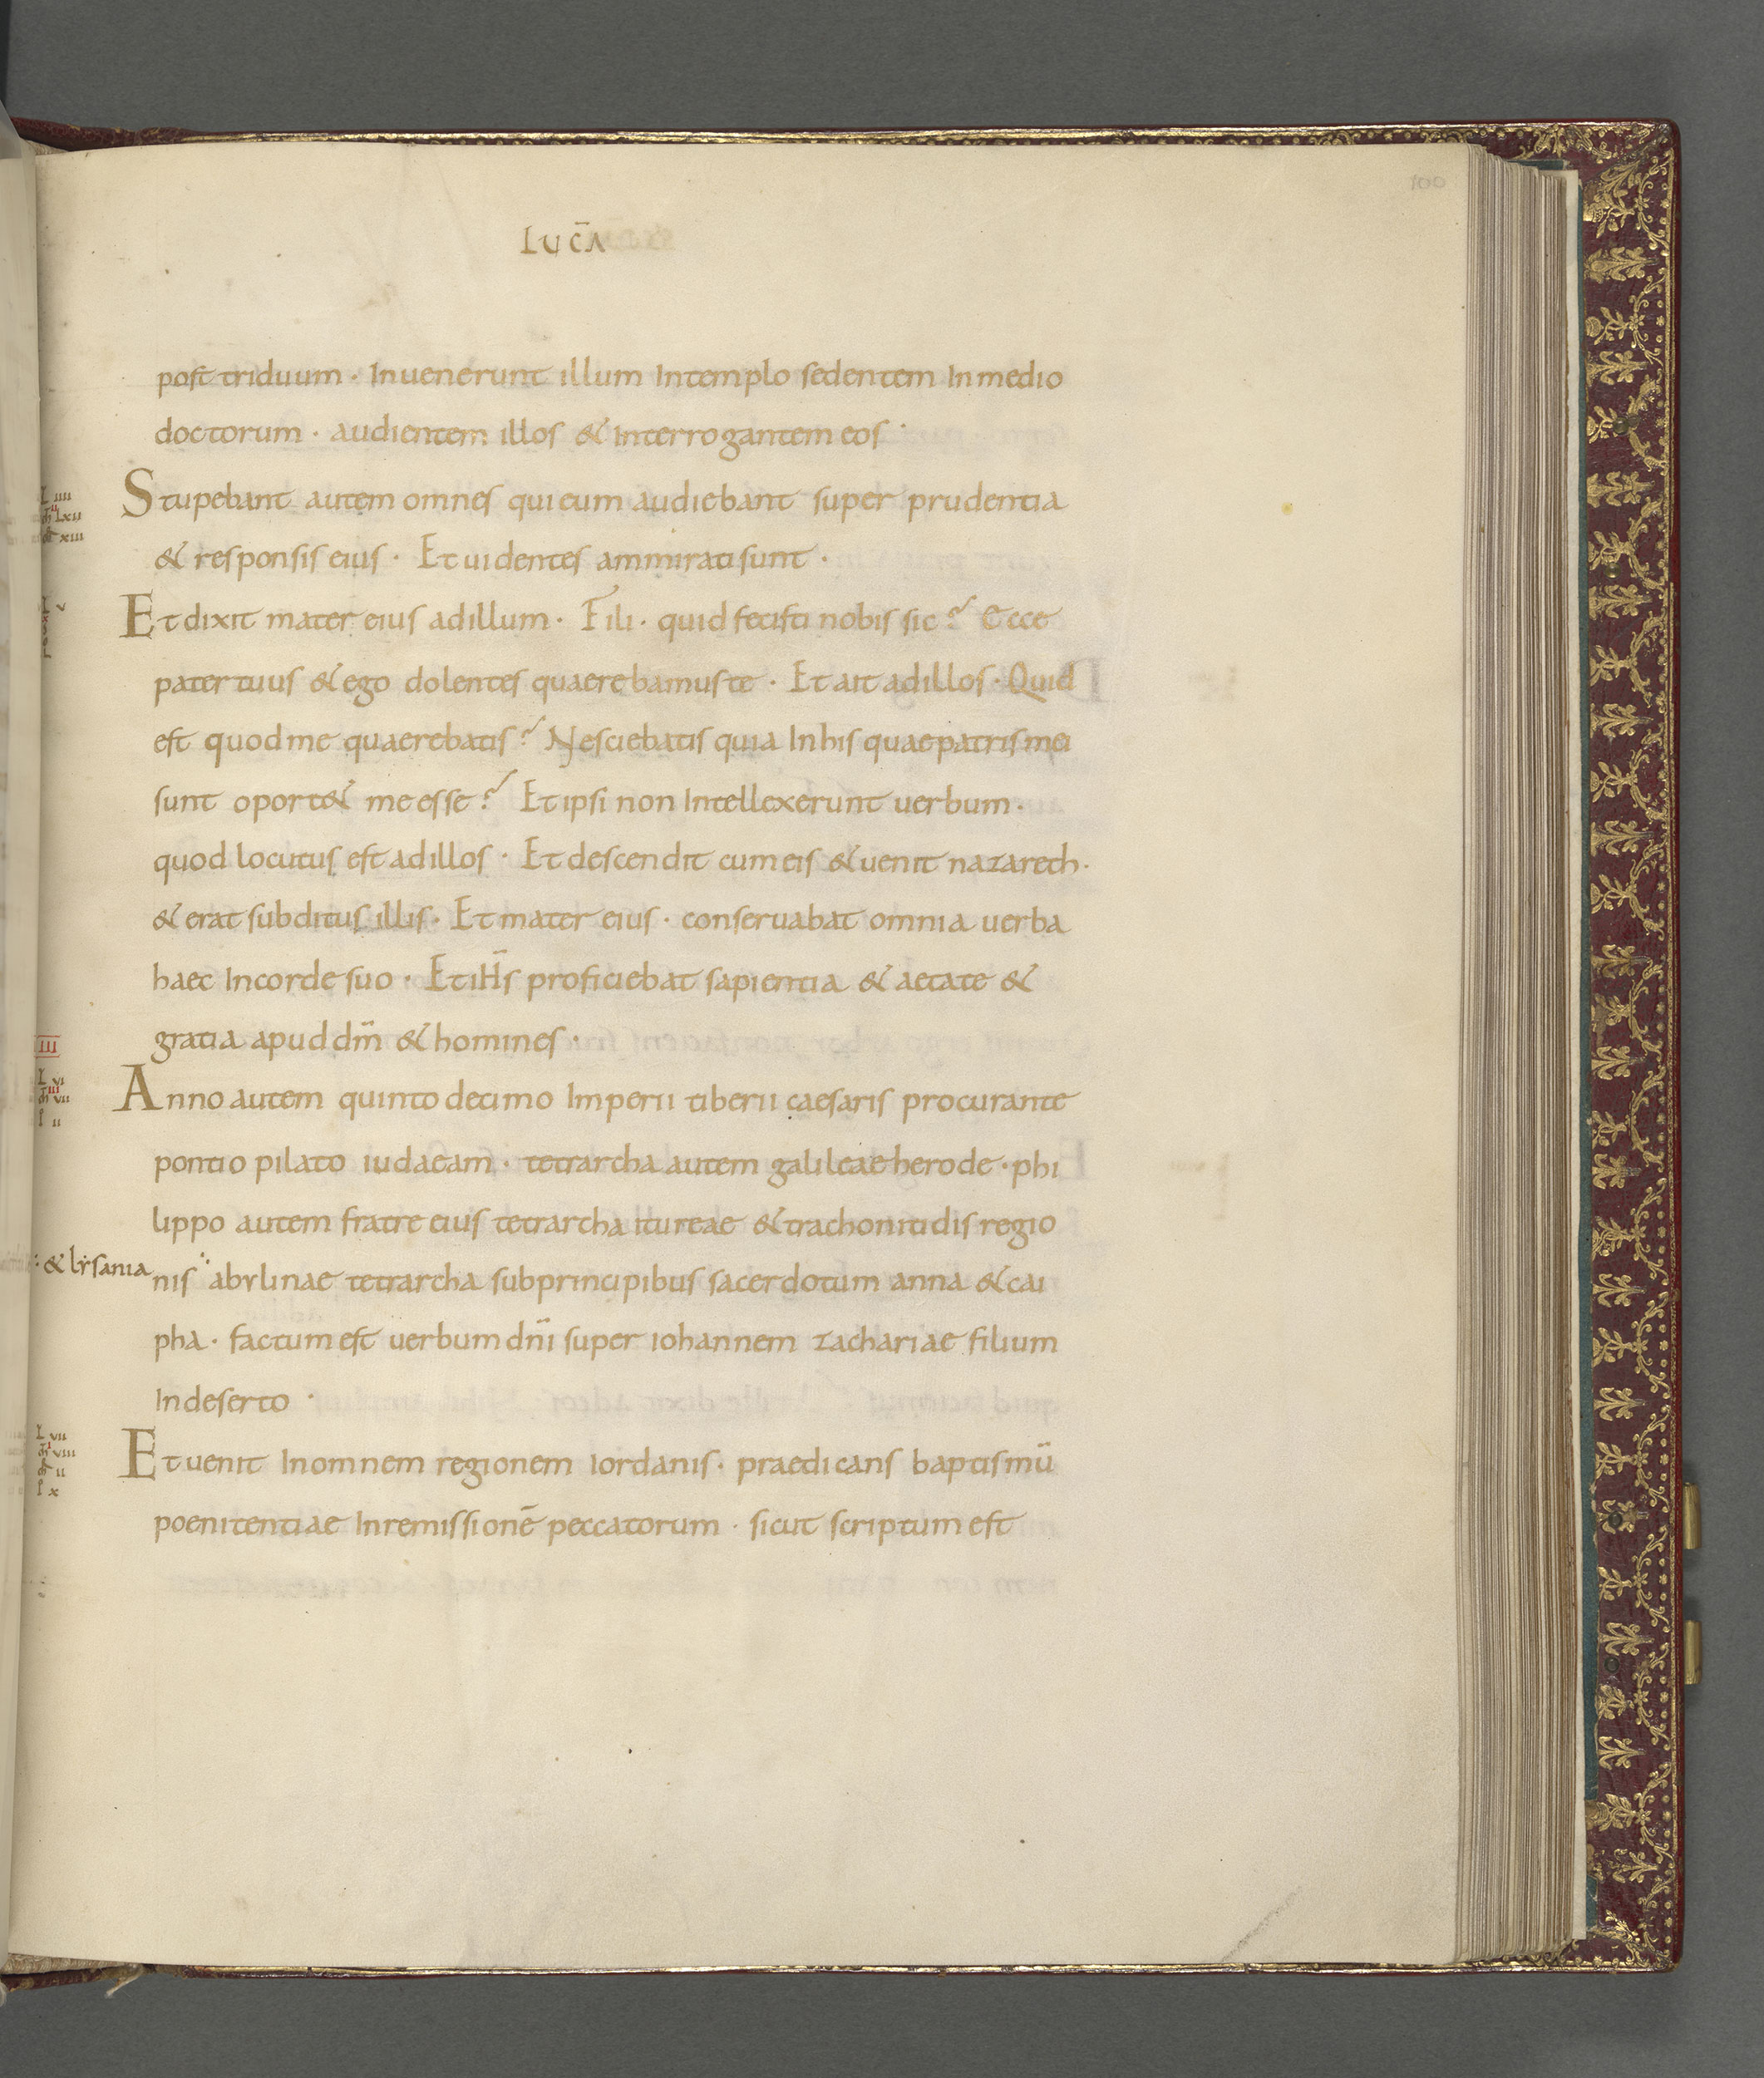 100
LUCĀ
post triduum · Inuenerunt illum Intemplo sedentem Inmedio
doctorum · audientem illos & Interrogantem eos ·
L IIII
Stupebant autem omnes qui eum audiebant super prudentia
& responsis eius · Et uidentes ammirati sunt ·
L V
Et dixit mater eius adillum · Fili · quid fecisti nobis sic? Ecce
pater tuus & ego dolentes quaerebamus te · Et ait adillos · Quid
est quod me quaerebatis? Nesciebatis quia Inhis quae patris mei
sunt oport& me esse? Et ipsi non Intellexerunt uerbum ·
quod locutus est adillos · Et descendit cum eis & uenit nazareth ·
& erat subditus illis · Et mater eius · conseruabat omnia uerba
haec Incorde suo · Et iHs̄ proficiebat sapientia & aetate &
gratia apud dm̄ & homines ·
III
L VI
Anno autem quinto decimo Imperii tiberii caesaris procurante
pontio pilato iudaeam · tetrarcha autem galileae herode · phi
lippo autem fratre eius tetrarcha itureae & trachonitidis regio
& lysania
nis abylinae tetrarcha sub principibus sacerdotum anna & cai
pha · factum est uerbum dn̄i super iohannem zachariae filium
Indeserto ·
L VII
Et uenit Inomnem regionem iordanis · praedicans baptismū
poenitentiae Inremissionē peccatorum · sicut scriptum est